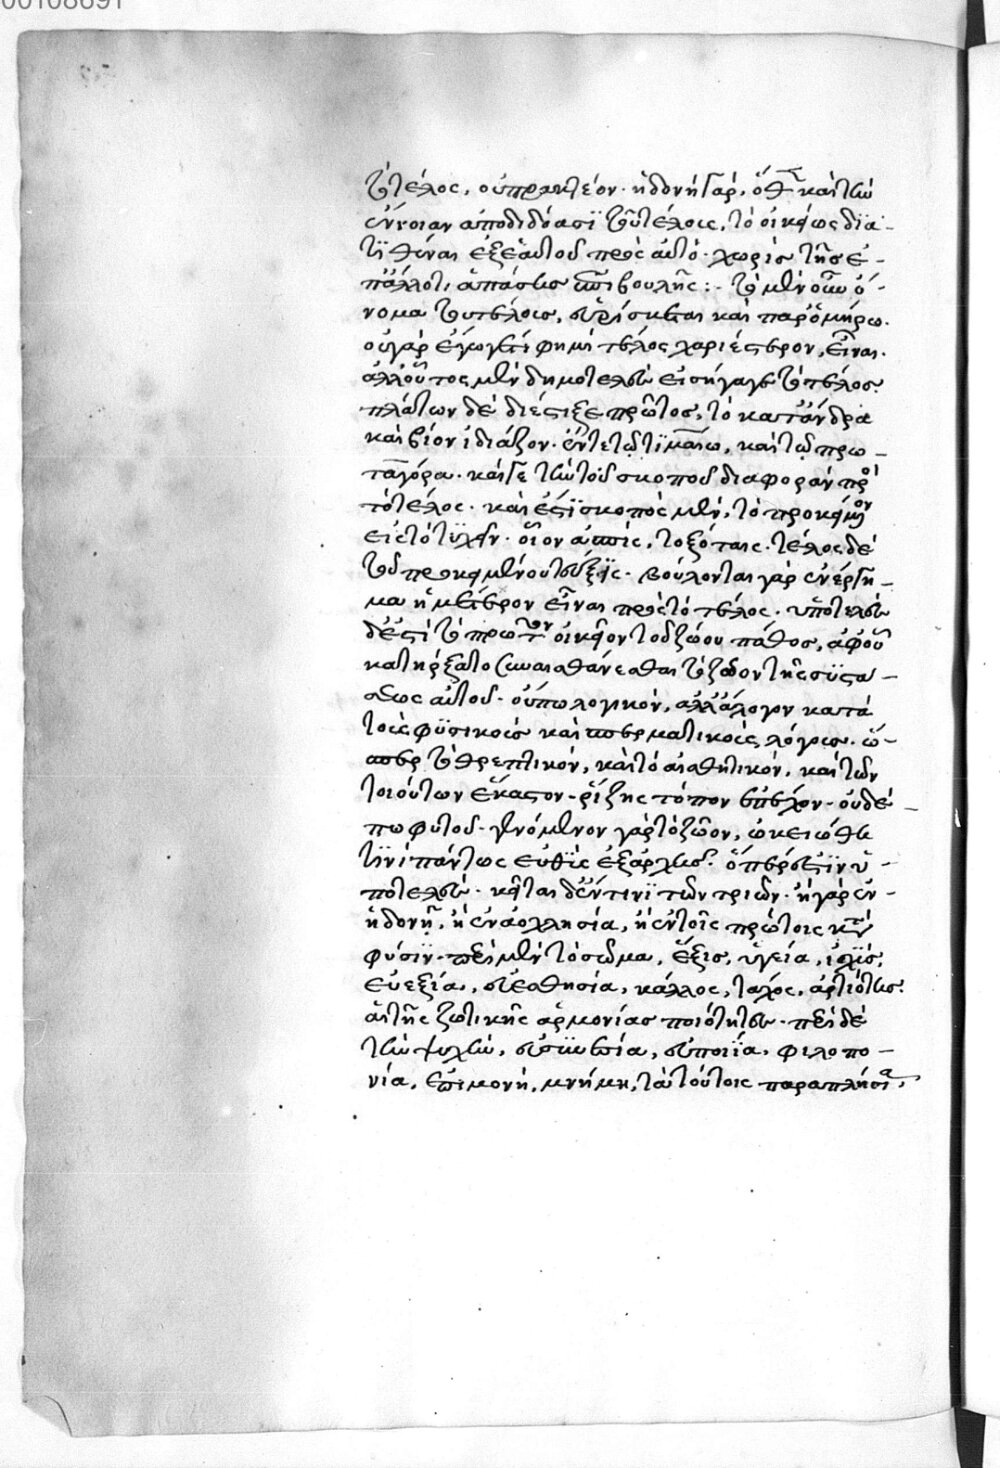 00108691
τὸ τέλος, οὐ πρακτέον. ἡδονὴ γάρ. ὅθεν καὶ τὴν
ἔννοιαν ἀποδιδόασϊ τοῦ τέλους, τὸ οἰκείως δϊα-
τϊθέναι ἐξ ἑαυτοῦ πρὸς αὐτό. χωρὶς τῆς ἐ-
π' ἄλλο τι ἁπάσης ἐπιβουλῆς :- τὸ μὲν οὖν ὄ-
νομα τοῦ τέλους, εὑρίσκεται καὶ παρ' ὁμήρω.
οὐ γὰρ ἐγωγέ τι φημὶ τέλος χαριέστερον, εἶναι.
ἀλλ' οὗτος μὲν δημοτελῶς εἰσήγαγε τὸ τέλος.
πλάτων δὲ διέστιξε πρῶτος, τὸ κατ' ἄνδρα
καὶ βίον ἰδιάζον. ἔν τε τῷ τϊμαίω, καὶ τῷ πρω-
ταγόρα. καί γε τὴν τοῦ σκοποῦ διαφορὰν πρὸς
τὸ τέλος. καὶ ἔστϊ σκοπὸς μὲν, τὸ προκείμενον
εἰς τὸ τϋχεῖν. οἷον ἀσπὶς, τοξόταις. τέλος δὲ
τοῦ προκειμένου τεῦξϊς. βούλονται γὰρ ἐνέργη-
μα ἡμέτερον εἶναι πρὸς τὸ τέλος. ὑποτελὶς
δ' ἐστὶ τὸ πρῶτον οἰκεῖον τοῦ ζώου πάθος, ἀφ' οὗ
κατήρξατο συναισθάνεσθαι τὸ ζῶον τῆς συστά-
σεως αὐτοῦ. οὔπω λογικὸν, ἀλλ' ἄλογον κατὰ
τοὺς φϋσικοὺς καὶ σπερματικοὺς λόγους. ὥ-
σπερ τὸ θρεπτικὸν, καὶ τὸ αἰσθητικόν. καὶ τῶν
τοιούτων ἕκαστον. ῥίζης τόπον ἐπέχον. οὐδέ-
πω φυτοῦ. γενόμενον γὰρ τὸ ζῶον, ὠκειώθη
τϊνὶ πάντως εὐθὺς ἐξ ἀρχῆς. ὅπερ ἐστὶν ὑ-
ποτελίς. κεῖται δ' ἔν τινϊ τῶν τριῶν. ἢ γὰρ ἐν
ἡδονῇ, ἢ ἐν ἀοχλησία, ἢ ἐν τοῖς πρώτοις κατὰ
φύσϊν. περὶ μὲν τὸ σῶμα, ἕξις, ὑγεία, ἰσχϋς,
εὐεξία, εὐαισθησία, κάλλος, τάχος, ἀρτιότης.
αἱ τῆς ζωτικῆς ἁρμονίας ποιότητες. περὶ δὲ
τὴν ψυχὴν, εὐσϋνεσία, εὐφυΐα, φιλοπο-
νία, ἐπιμονὴ, μνήμη, τὰ τούτοις παραπλήσια,